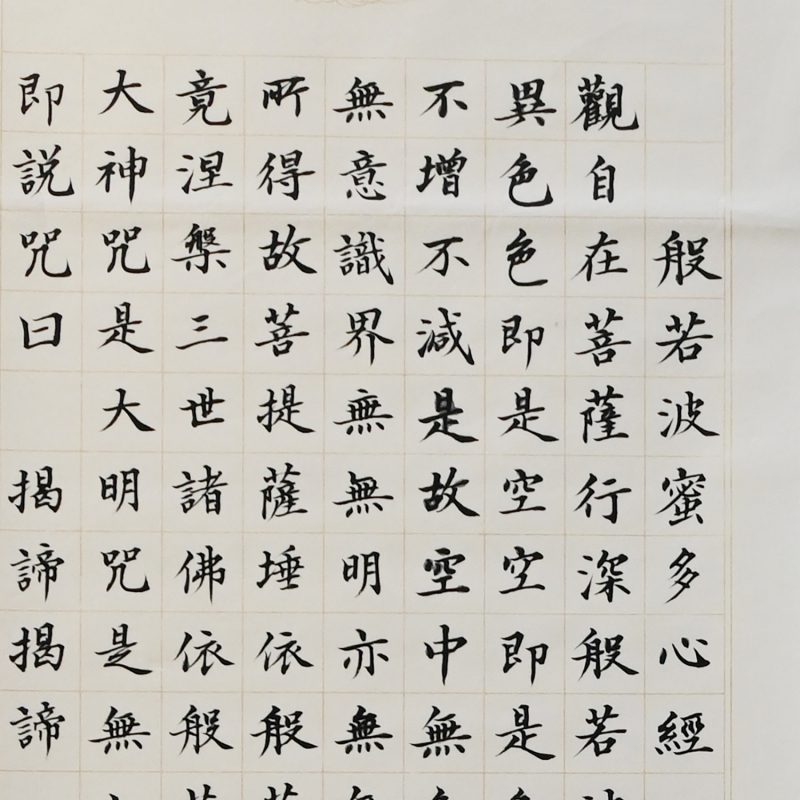 般若波蜜多心經
觀自在菩薩行深般若
異色色即是空空即是
不增不減是故空中無
無意識界無無明亦無
所得故菩提薩埵依般
竟涅槃三世諸佛依般
大神咒是大明咒是無
即説咒曰揭諦揭諦